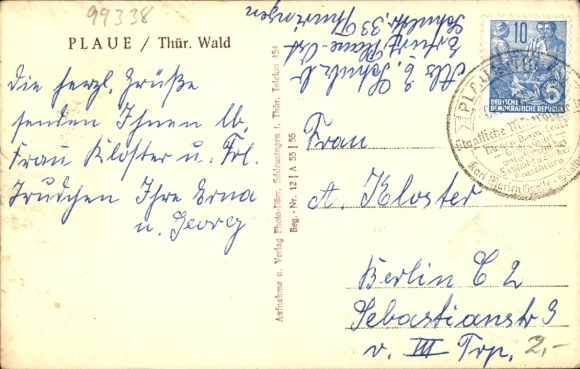 99338
PLAUE / Thür. Wald
Die herzl. Grüße
senden Ihnen lb.
Frau Kloster u. Frl.
Trudchen Ihre Erna
u. Georg
Aufnahme u. Verlag Photo-Dörr, Schleusingen i. Thür. Telefon 454
Reg.-Nr. 12 | A 55 | 55
Abs. E. Schulz b.
Erfurt, Plaue Ost
Schulstr. 33
Thüringen
10
DEUTSCHE
DEMOKRATISCHE REPUBLIK
5
PLAUE
Frau
A. Kloster
Berlin C 2
Sebastianstr 9
v. III Trp.
2,-